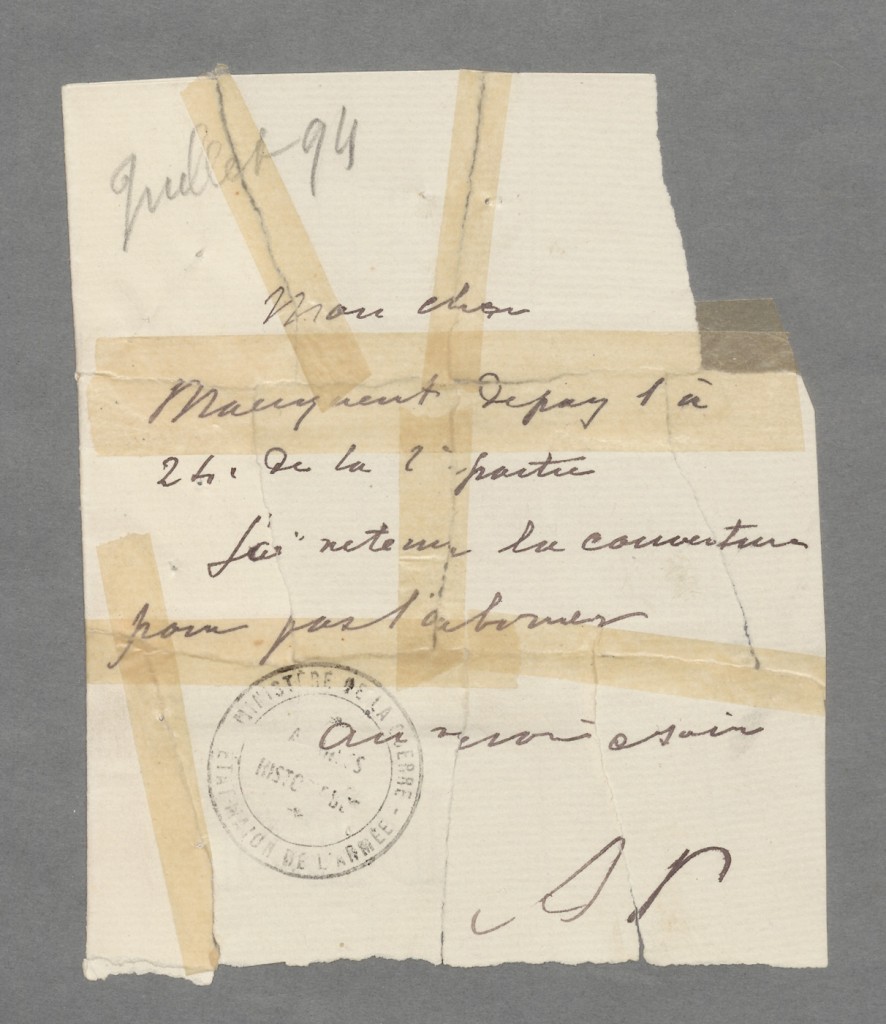 Juillet 94
Mon cher
Manquent de pag 1 à
24. de la 2e partie
J'ai retenu la couverture
pour pas l'abimer
au revoir
MINISTÈRE DE LA GUERRE -
ÉTAT-MAJOR DE L'ARMÉE